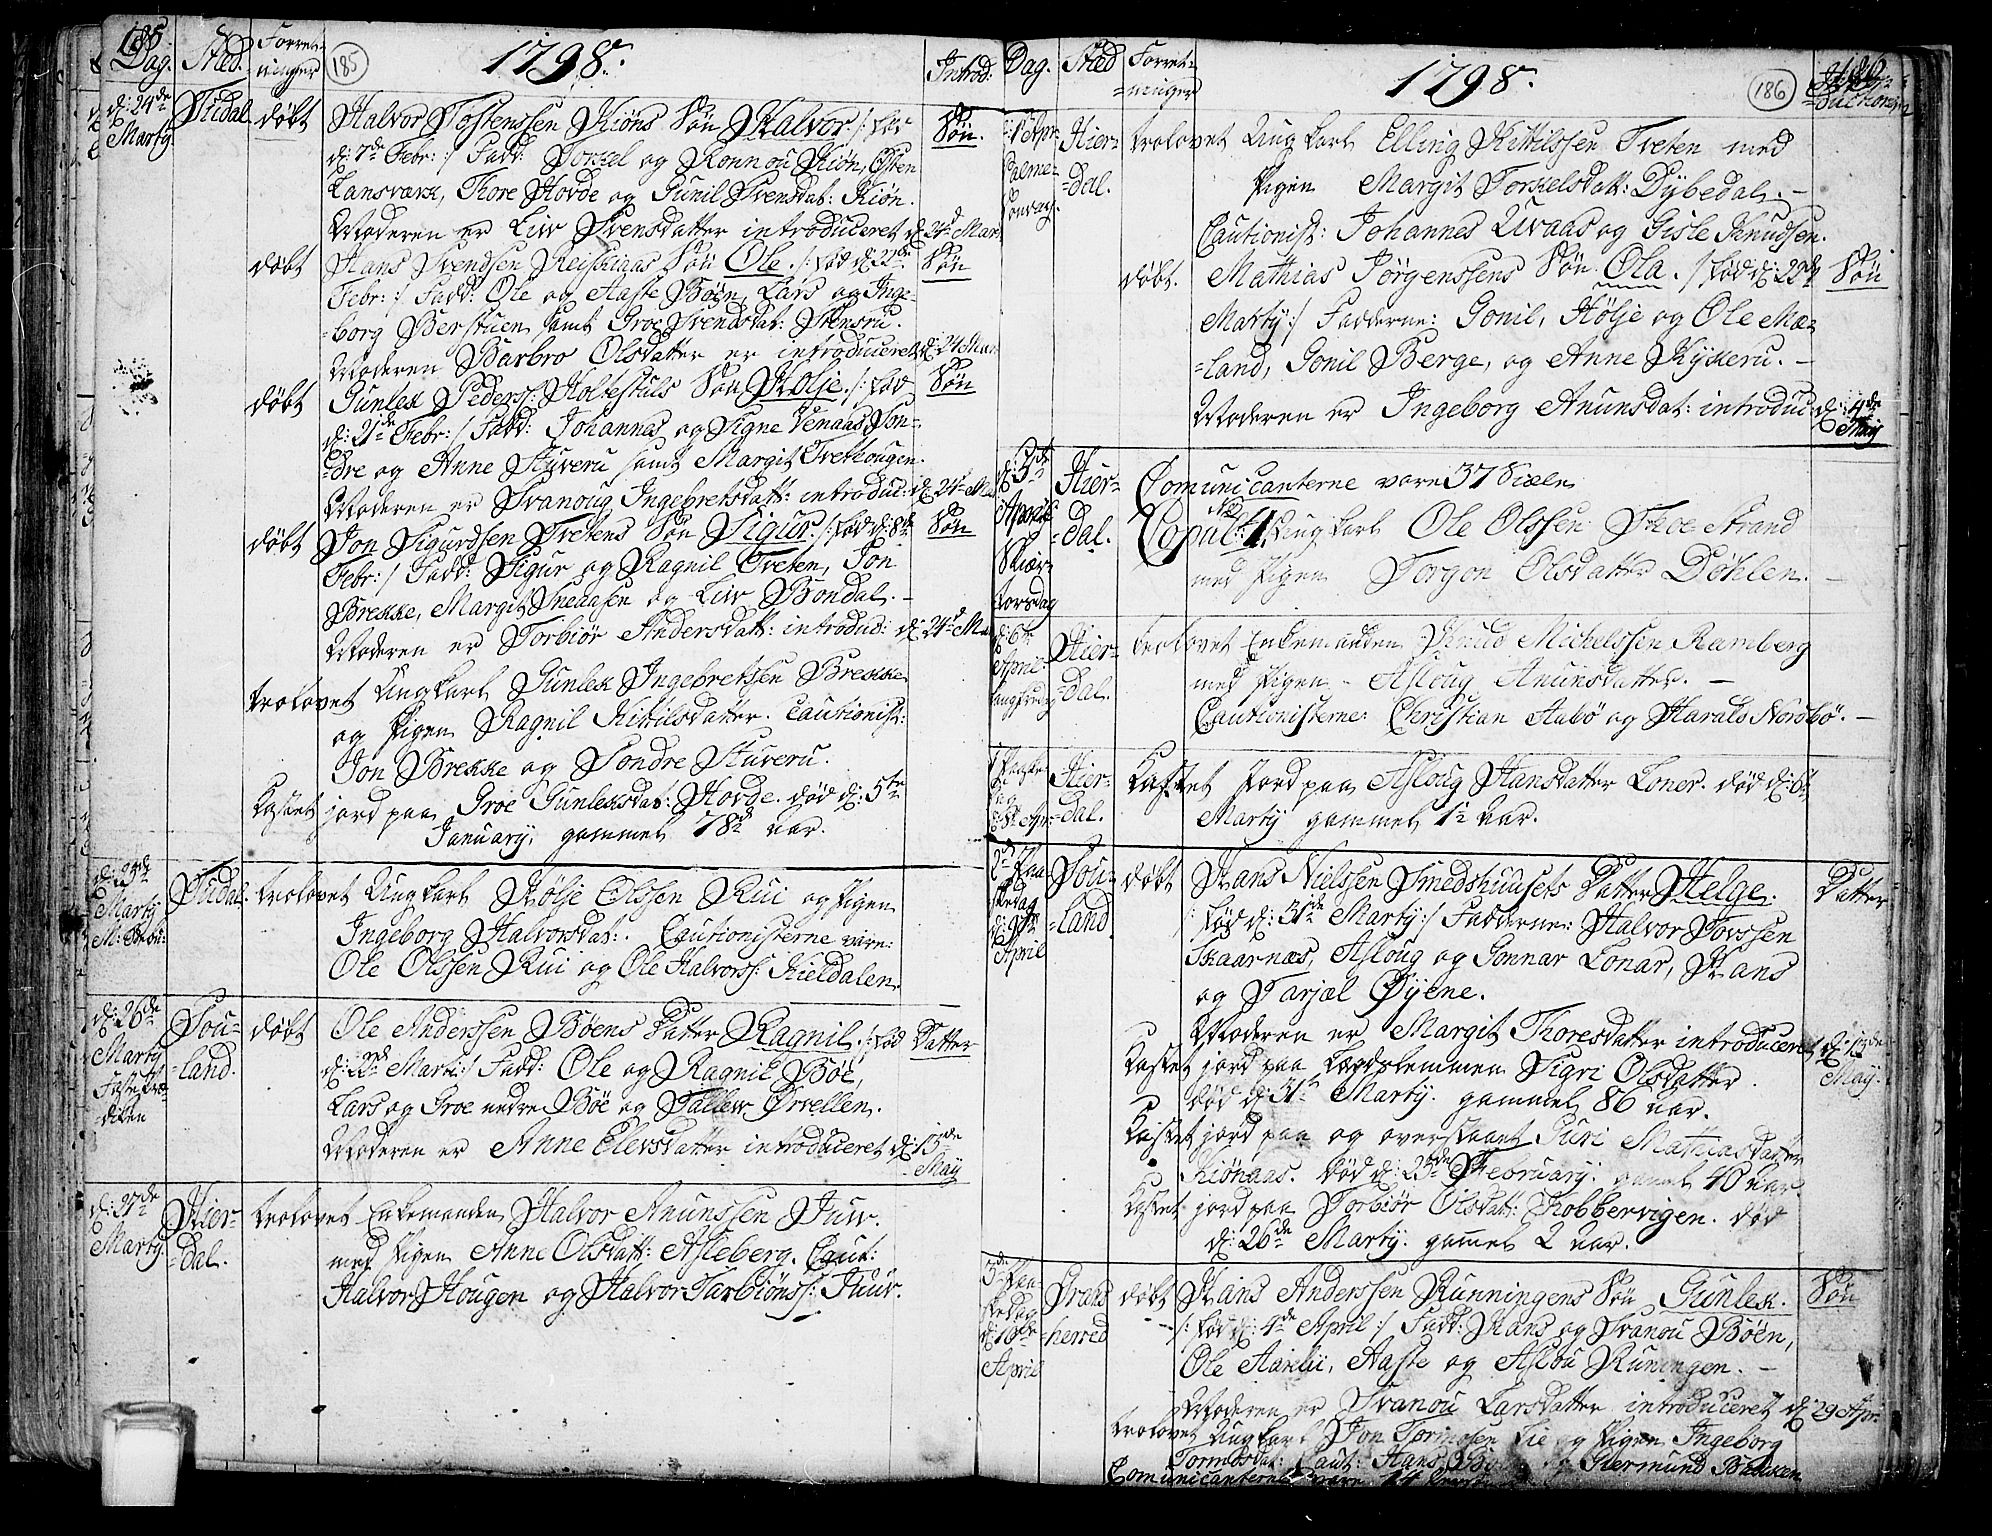 185.
Dag. Sted. Forret-
ninger
185
1798.
Introd:
d: 24de Marty Tudal døbt Halvor Tostenssen Kiøns Søn Halvor /: fød Søn.
d: 7de Febr: :/ Fadd: Torkel og Ronnou Kiøn, Østen
Lansværk, Thore Hovde og Gunil Svensdat: Kiøn.
Moderen er Liv Svensdatter introduceret d: 24d Mar
døbt Hans Svendsen Reiskaas Søn Ole. /: fød d: 22de Søn
Febr: :/ Fadd: Ole og Aaste Bøen, Lars og Inge-
-borg Berstuen samt Groe Svendsdat: Stensru.
Moderen Barbro Olsdatter er introduceret d: 24 Mar
døbt Gunlek Peders: Holtestuls Søn Kølje. /: fød Søn
d: 21de Febr: :/ Fadd: Johannes og Signe Venaas, Son-
-dre og Anne Stuveru samt Margit Tvethougen.
Moderen er Svanoug Ingebretsdatt: introduc: d: 24de Ma
døbt Jon Sigurdsen Tvetens Søn Sigur: /: fød d: 8de Søn
Febr: :/ Fadd: Sigur og Ragnil Tveten, Jon
Brekke, Margit Sneaasen og Liv Bondal.
Moderen er Torbiør Andersdatt: introdud: d: 24d Ma
trolovet Ungkarl Gunlek Ingebretsen Brekke
og Pigen Ragnil Kittilsdatter. Cautionist:
Jon Brekke og Sondre Stuveru.
Kastet jord paa Groe Gunleksdat: Hovde. død d: 5te
January, gammel 78 aar.
d: 25de Marty M: Bebu: Tudal. trolovet Ungkarl Kølje Olssen Rui og Pigen
Ingeborg Halvorsdat: Cautionisterne vare:
Ole Olssen Rui og Ole Halvorss: Kieldalen.
d: 26de Marty Faste Præ-diken Sou-
-land. døbt Ole Anderssen Bøens Datter Ragnil. /: fød Datter
d: 23de Marti :/ Fadd: Ole og Ragnil Bøe,
Lars og Groe nedre Bøe og Tallev Ørvellen.
Moderen er Anne Elevsdatter introduceret d: 13de
May
d: 27de Marty. Hier-
-dal. trolovet Enkemanden Halvor Anunssen Juv.
med Pigen Anne Olsdatt: Asleberg. Caut:
Halvor Hougen og Halvor Tarbiønss: Juuv.
Dag. Sted Forret-
-ninger
1798.
186
d: 1 Apr: Palme-Søndag. Hier-
-dal. trolovet Ungkarl Elling Kittilssen Tveten med
Pigen Margit Torkelsdatt: Dybedal. -
Cautionist: Johannes Uvaas og Gisle Knudsen.
døbt. Mathias Jørgenssens Søn Ola. /: fød d: 20de Søn
Marty :/ Fadderne: Gonil, Kølje og Ole Mæ-
-land, Gonil Berge, og Anne Kykeru. -
Moderen er Ingeborg Anunsdat: introduc: d: 4de
May
d: 5te April Skiær-torsdag Hier-
-dal. Comunicanterne vare 37 Siæle
Copul: No 1. Ungkarl Ole Olssen Thoe Strand
med Pigen Torgon Olsdatter Døhlen. -
d: 6te April: Langfredag Hier-
-dal. trolovet Enkemanden Knud Michelssen Ramberg
med Pigen - Asloug Anunsdatter. -
Cautionisterne: Christian Aabø og Harals Norsbø. -
1 Paaske-dag d: 8de Apr: Hier-
-dal. Kastet Jord paa Asloug Hansdatter Loner. død d: 6te
Marty gammel 12 Aar.
2den Paa-skedag d: 9de April Sou-
-land. døbt Hans Nielssen Smedshuusets Datter Helge: Datter
/: fød d: 31de Marty :/ Fadderne: Halvor Tovssen
Skaarnæs, Asloug og Gonnar Lonar, Hans
og Tarjæl Øyene.
Moderen er Margit Thoresdatter introduceret d: 13de
May.
Kastet jord paa Lægdslemmen Sigri Olsdatter.
død d: 31te Marty. gammel 86 aar.
Kastet jord paa og overskaaret Guri Mathiasdatter
Kiønaas. død d: 25de February. gamel 40 aar.
Kastet jord paa Torbiør Olsdatt: Kobbervigen. død
d: 26de Marty. gamel 2 aar.
3de Paa-skedag d: 10de April Grans
-herred døbt Hans Anderssen Runningens Søn Gunlek. Søn
/: fød d: 4de April :/ Fadd: Hans og Svanou Bøen,
Ole Aarlii, Aaste og Aslou Runingen. -
Moderen er Svanou Larsdatter introduceret d: 29 Apr:
trolovet Ungkarl Jon Tormosen Lie og Pigen Ingeborg
Tormosdat: Caut: Hans og Giermund Bakken
Comunicanterne vare 14